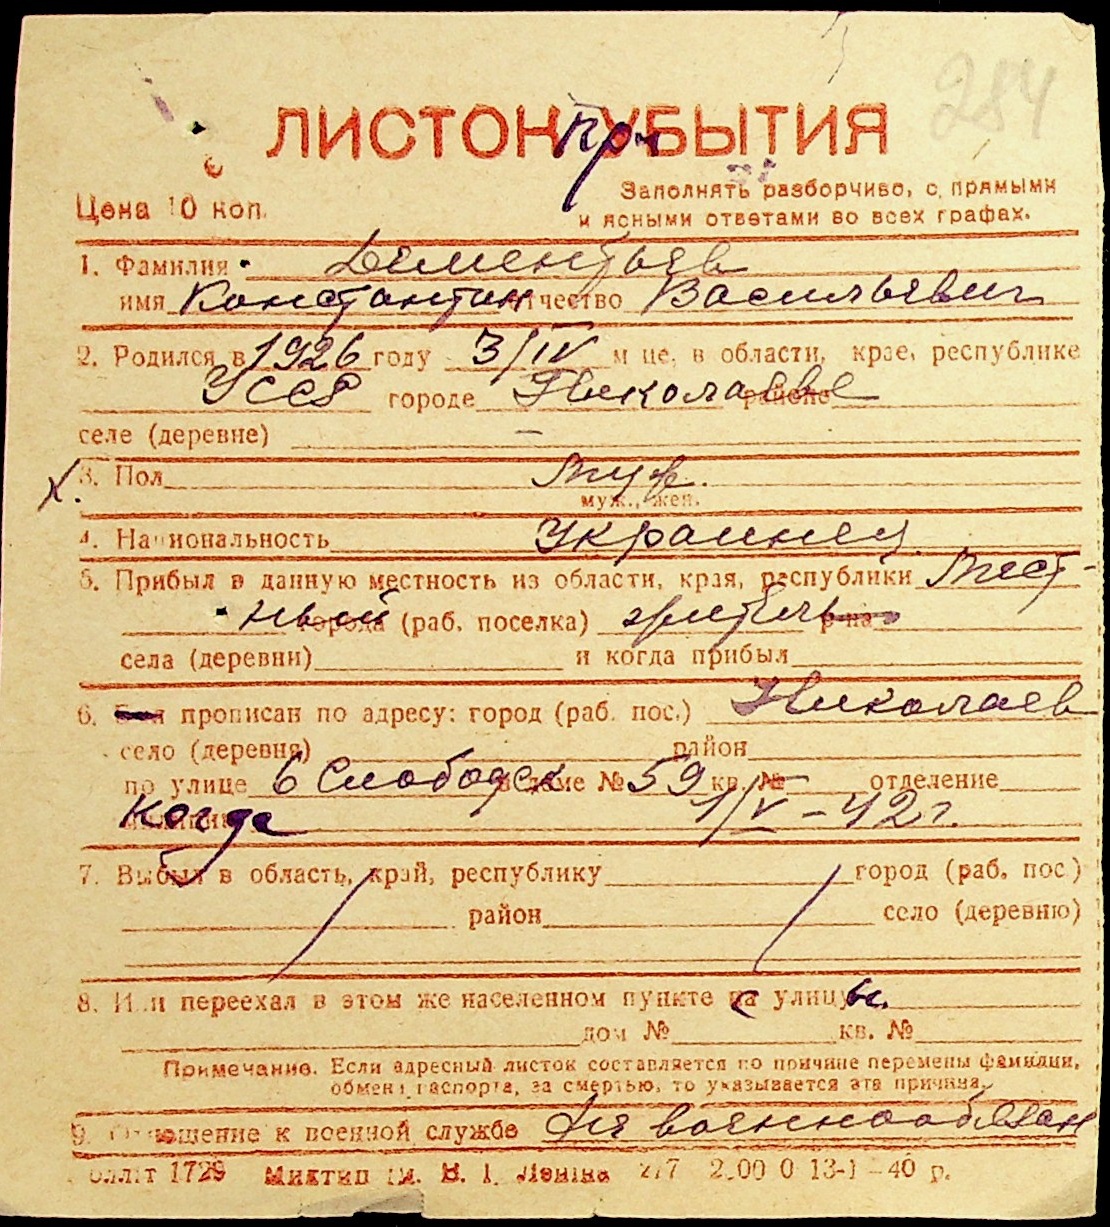 284
ЛИСТОК Пр УБЫТИЯ
Цена 10 коп.
Заполнять разборчиво, с прямыми
и ясными ответами во всех графах.
1. Фамилия Дементьев
имя Константин отчество Васильевич
2. Родился в 1926 году 3/IV м-це, в области, крае, республике
УССР городе Николаеве районе
селе (деревне) —
3. Пол Муж.
муж., жен.
4. Национальность Украинец
5. Прибыл в данную местность из области, края, республики Мест-
ный города (раб. поселка) житель р-на
села (деревни) и когда прибыл
6. Был прописан по адресу: город (раб. пос.) Николаев
село (деревня) район
по улице 6 Слободск в доме № 59 кв. № отделение
милиции когда 1/V – 42 г.
7. Выбыл в область, край, республику город (раб. пос.)
район село (деревню)
8. Или переехал в этом же населенном пункте с улицы
дом № кв. №
Примечание. Если адресный листок составляется по причине перемены фамилии,
обмена паспорта, за смертью, то указывается эта причина.
9. Отношение к военной службе Не военнообязан
1729 Миктип ім. В. І. Леніна 217 2.00 0 13-І – 40 р.